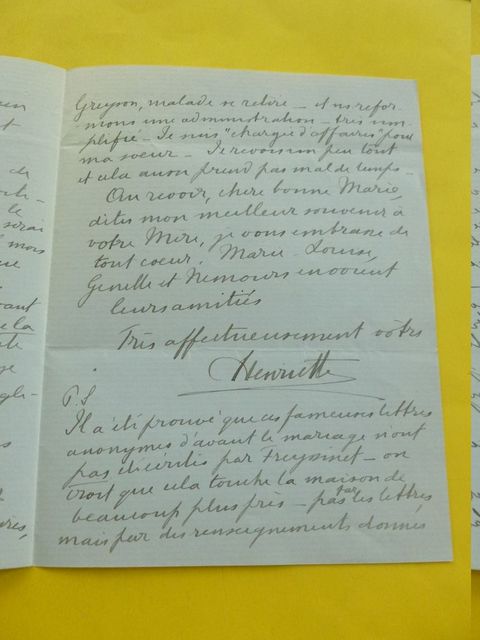 Greyson, malade se retire - et ns refor-
mons une administration - très sim-
plifié - Je suis "chargée d'affaires" pour
ma soeur - Je revois un peu tout
et cela aussi prend pas mal de temps -
Au revoir, chère bonne Marie,
dites mon meilleur souvenir à
votre Mère, je vous embrasse de
tout coeur. Marie-Louise,
Genette et Nemours envoient
leurs amitiés
Très affectueusement vôtre
Henriette
P.S
Il a été prouvé que ces fameuses lettres
anonymes d'avant le mariage n'ont
pas été écrites par Freyssinet - on
croit que cela touche la maison de
beaucoup plus près - pas par les lettres
mais par des renseignements donnés